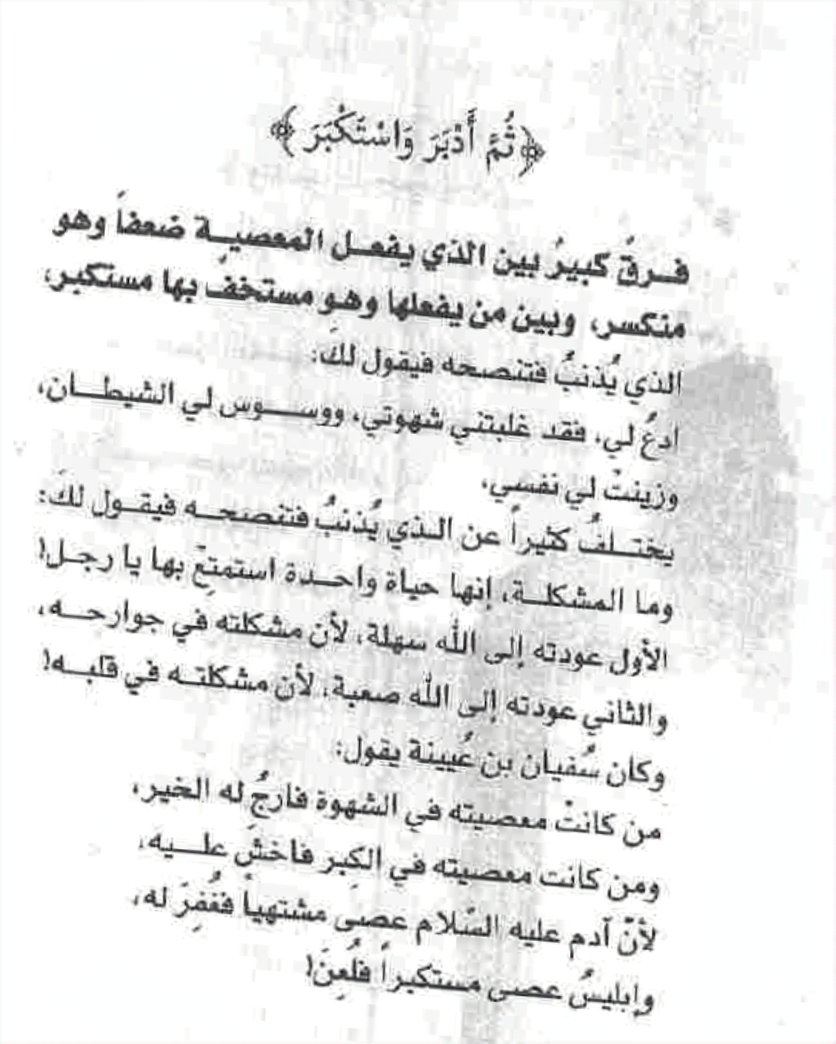 ﴿ثُمَّ أَدْبَرَ وَاسْتَكْبَرَ﴾
فرقٌ كبيرٌ بين الذي يفعل المعصية ضعفاً وهو
منكسر، وبين من يفعلها وهو مستخفٌ بها مستكبر،
الذي يُذنبُ فتنصحه فيقول لكَ:
ادعُ لي، فقد غلبتني شهوتي، ووسوس لي الشيطان،
وزينتْ لي نفسي،
يختلفُ كثيراً عن الذي يُذنبُ فتنصحه فيقول لكَ:
وما المشكلة، إنها حياة واحدة استمتِعْ بها يا رجل!
الأول عودته إلى الله سهلة، لأن مشكلته في جوارحه،
والثاني عودته إلى الله صعبة، لأن مشكلته في قلبه!
وكان سُفيان بن عُيينة يقول:
من كانتْ معصيته في الشهوة فارجُ له الخير،
ومن كانت معصيته في الكِبر فاخشَ عليه،
لأنّ آدم عليه السّلام عصى مشتهياً فغُفِرَ له،
وإبليسُ عصى مستكبراً فلُعِنَ!